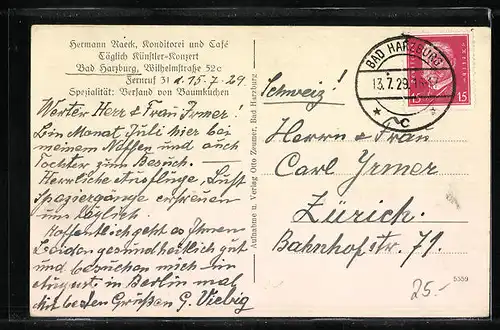 Hermann Raeck, Konditorei und Café
Täglich Künstler-Konzert
Bad Harzburg, Wilhelmstraße 52c
Fernruf 31 d. 15. 7. 29.
Spezialität: Versand von Baumkuchen
Werter Herr & Frau Irmer!
Bin Monat Juli hier bei
meinem Neffen und auch
Tochter zum Besuch. —
Herrliche Ausflüge, Luft
Spaziergänge erfreuen
uns täglich.
Hoffentlich geht es Ihnen
Beiden gesundheitlich gut
und besuchen mich im
August in Berlin mal
mit besten Grüßen G. Viebig
Aufnahme u. Verlag Otto Zeumer, Bad Harzburg
BAD HARZBURG
13.7.29
* c
15 15
Schweiz!
Herrn & Frau
Carl Yrmer
Zürich.
Bahnhofstr. 71.
25.-
5559